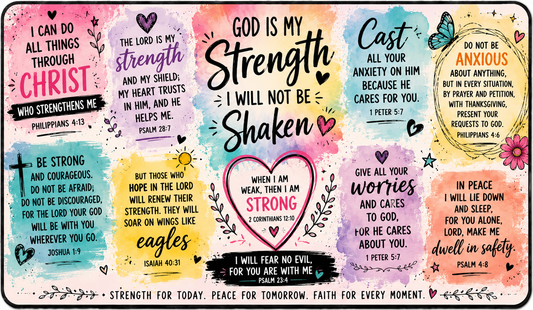 I CAN DO
ALL THINGS
THROUGH
CHRIST
WHO STRENGTHENS ME
PHILIPPIANS 4:13
THE LORD IS MY
strength
AND MY SHIELD;
MY HEART TRUSTS
IN HIM, AND HE
HELPS ME.
PSALM 28:7
GOD IS MY
Strength
I WILL NOT BE
Shaken
Cast
ALL YOUR
ANXIETY ON HIM
BECAUSE HE
CARES FOR YOU.
1 PETER 5:7
DO NOT BE
ANXIOUS
ABOUT ANYTHING,
BUT IN EVERY SITUATION,
BY PRAYER AND PETITION,
WITH THANKSGIVING,
PRESENT YOUR
REQUESTS TO GOD.
PHILIPPIANS 4:6
BE STRONG
AND COURAGEOUS.
DO NOT BE AFRAID;
DO NOT BE DISCOURAGED,
FOR THE LORD YOUR GOD
WILL BE WITH YOU
WHEREVER YOU GO.
JOSHUA 1:9
BUT THOSE WHO
HOPE IN THE LORD
WILL RENEW THEIR
STRENGTH. THEY WILL
SOAR ON WINGS LIKE
eagles
ISAIAH 40:31
WHEN I AM
WEAK, THEN I AM
STRONG
2 CORINTHIANS 12:10
I WILL FEAR NO EVIL,
FOR YOU ARE WITH ME
PSALM 23:4
GIVE ALL YOUR
worries
AND CARES
TO GOD,
FOR HE CARES
ABOUT YOU.
1 PETER 5:7
IN PEACE
I WILL LIE DOWN
AND SLEEP,
FOR YOU ALONE,
LORD, MAKE ME
dwell in safety.
PSALM 4:8
• STRENGTH FOR TODAY. PEACE FOR TOMORROW. FAITH FOR EVERY MOMENT.